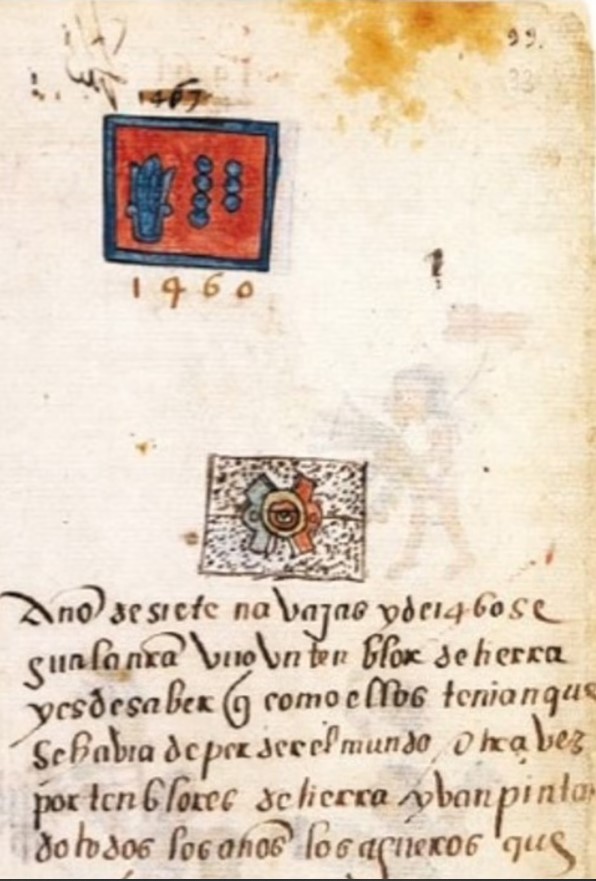 99.
1467
1460
Año de siete navajas y de 1460 se
gun la nra vuo vn tenblor de tierra
y es de saber q como ellos tenian que
se havia de perder el mundo otra vez
por tenblores de tierra yvan pintan
do todos los años los agueros que